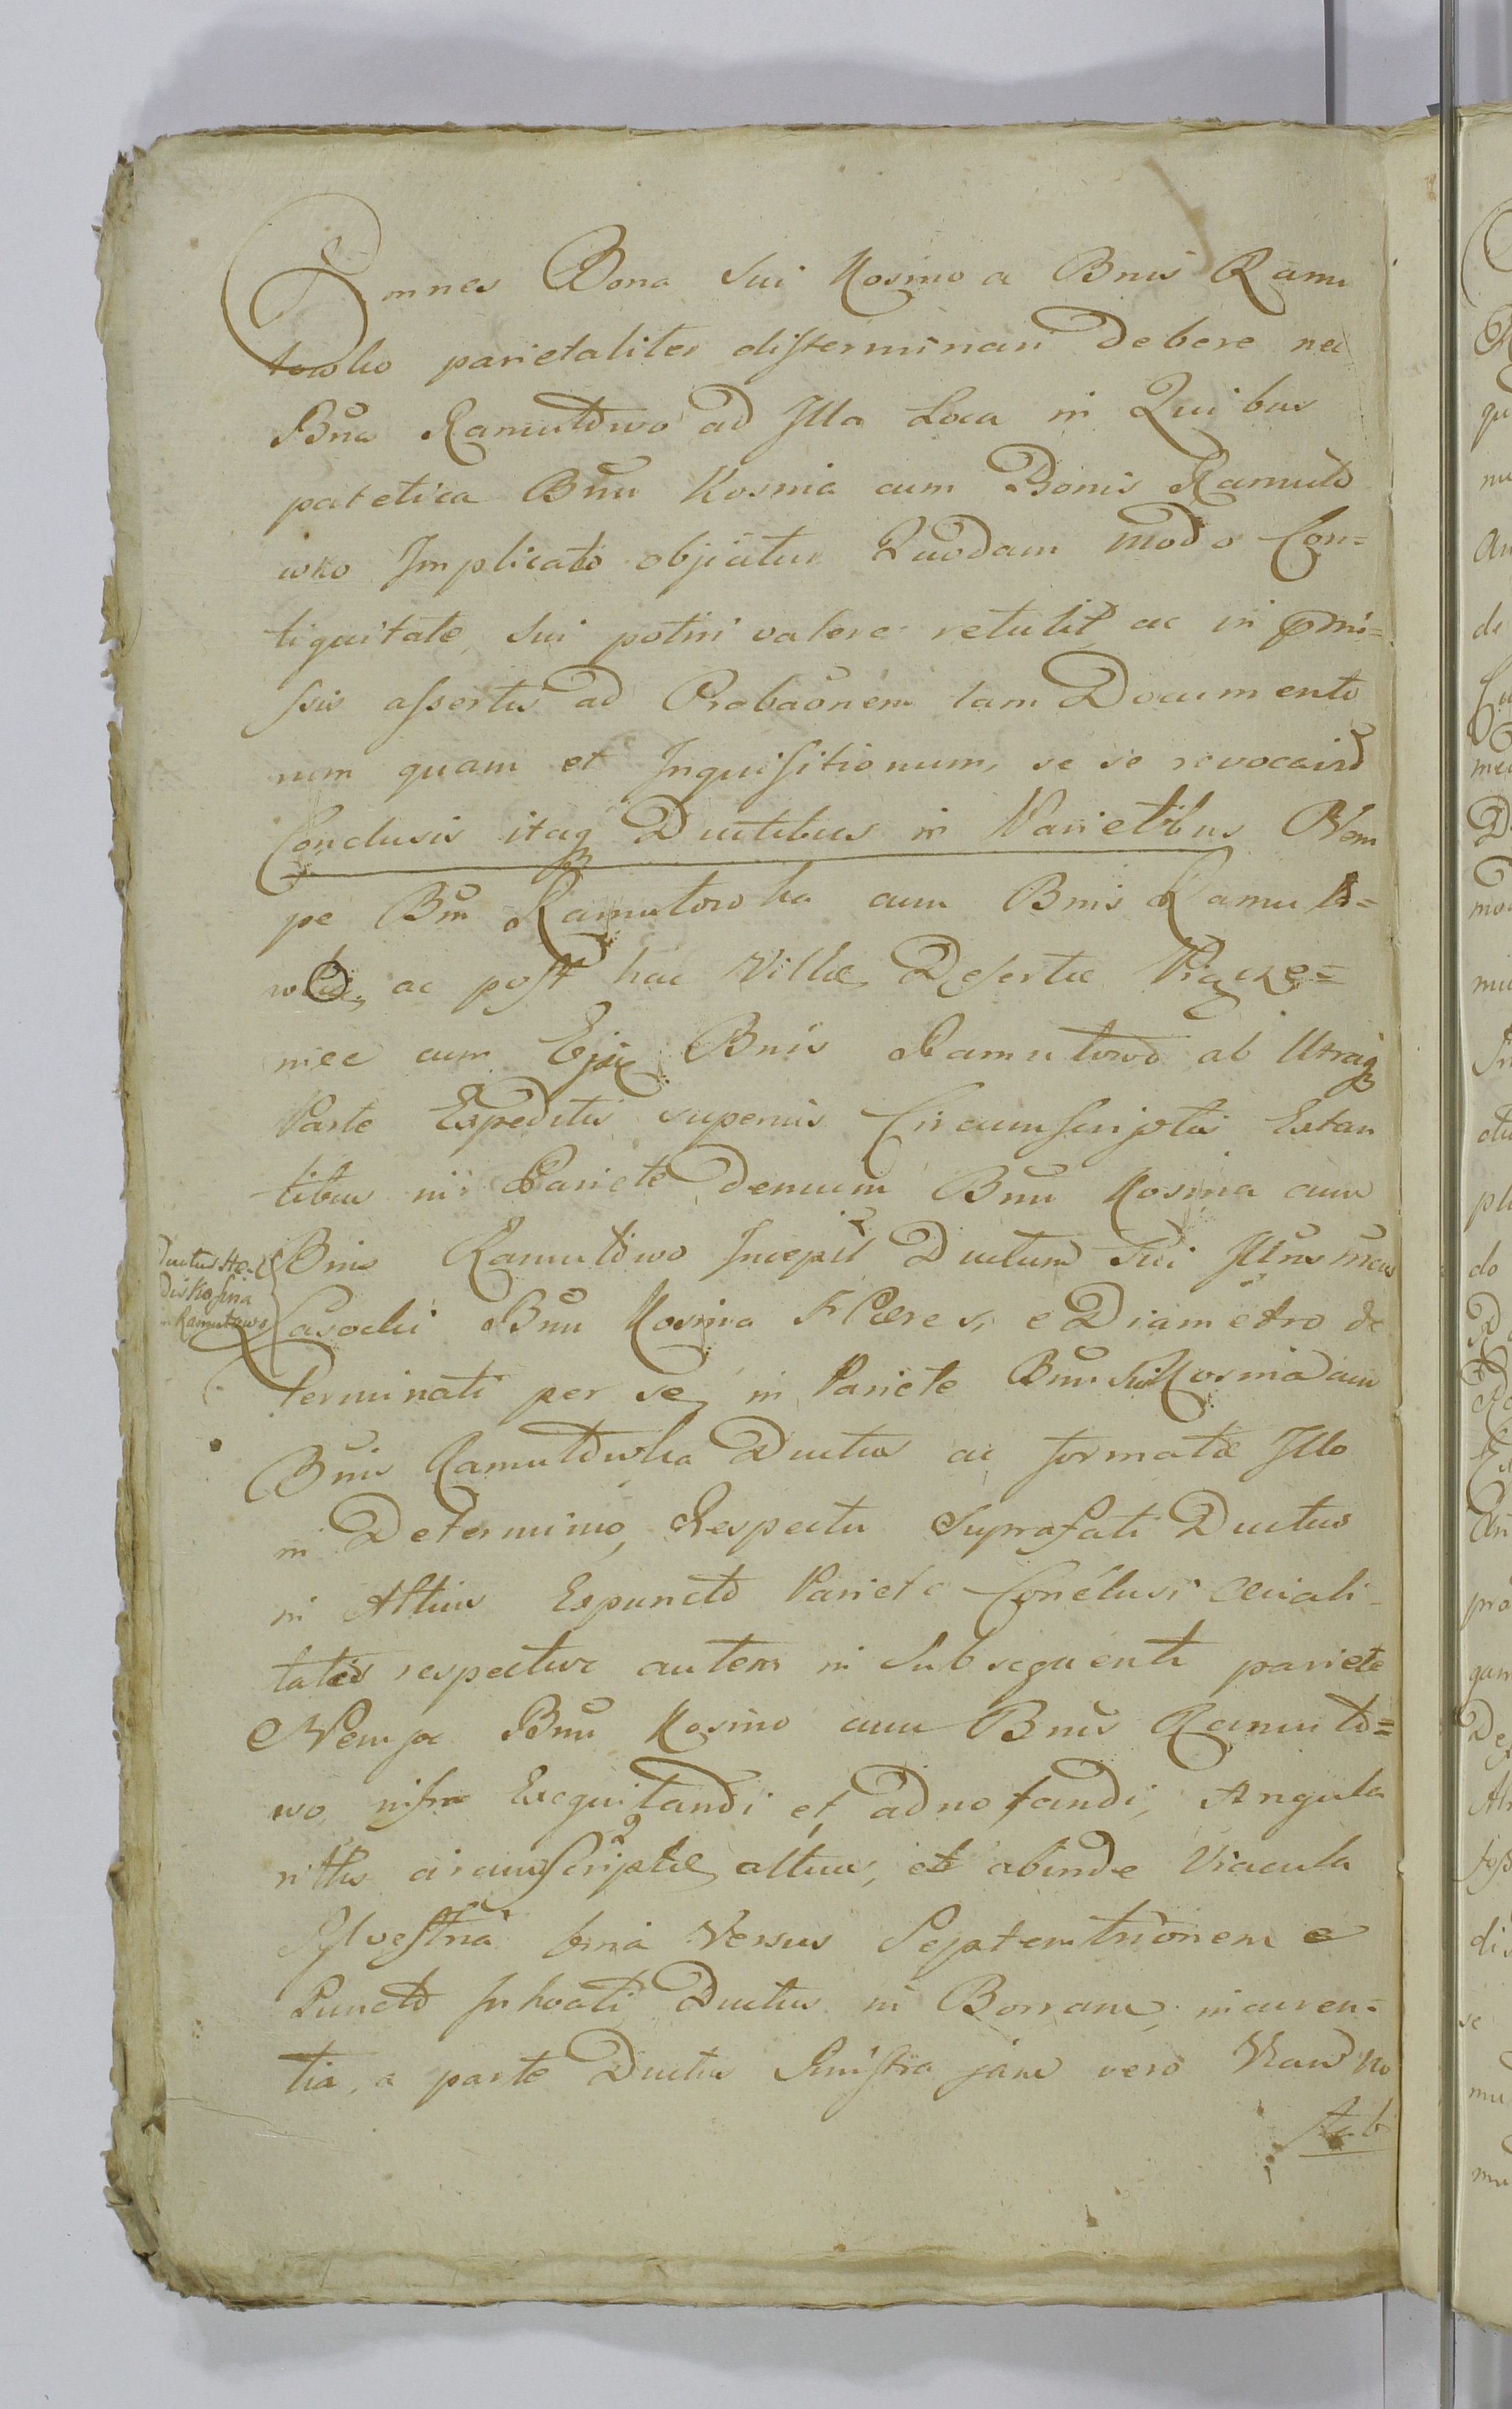 Omnes Bona sui Kosmo a Bnis Ramu
towko parietaliter disterminari Debere nec
Bna Ramutowo ad Illa Loca in Quibus
patetica Bnu Kosmia cum Bonis Ramuto
wko Implicato objicitur Quodam modo Con=
tiguitate, sui potiri valere retulit ac in pmi=
ssis assertis ad Probaonem tam Documento
rum quam et Inquisitionum, se se revocavit
Conclusis itaq Ductibus in Parietibus Nem
pe Bm Ramutowka cum Bnis Ramuto=
ac post hac Villæ Desertæ
niec cum Ejq Bnis Ramutowo ab Utraq
Parte Expeditis superius Circumscriptis Extan
tibus in Pariete Demum Bnu Kosma cum
Ductus Hæ
dis Kosma
Ramutowo
Bnis Ramutowo Incepit Ductum Sui Mcus
Lasocki Bnu Kosma Hæres, e Diametro de
terminati per se, in Pariete Bnu sui Kosma cum
Bnis Ramutowka Ductus ac formatæ Illo
in Determino, Respectu Suprafati Ductus
in Altius Expuncto Pariete Conclusi
tatis respective autem in Subsequenti pariete
Nempe Bnu Kosmo cum Bnis Ramuto=
wo, infra Exequitandi et adnotandi, Angula
ritter circumscriptæ altius, et abinde Viacula
Sylvestria bina Versus Septemtrionem e
Puncto Inhoati Ductus in Borram, incuren=
tia, a parte Ductus Sinistra jam vero no
Aab